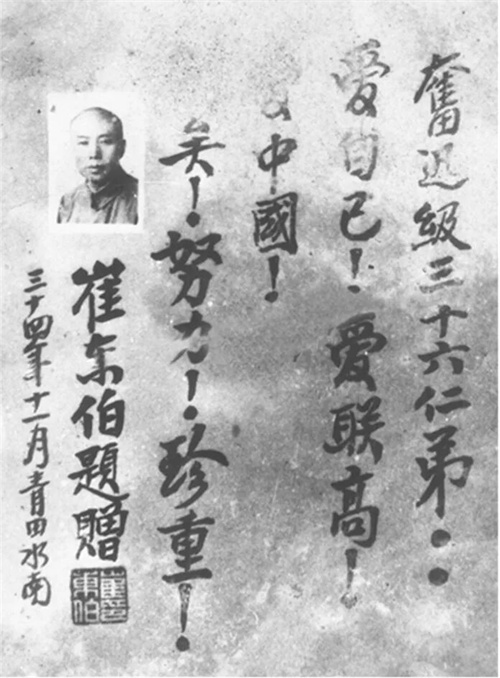 奮迅級三十六仁弟：
愛自己！愛联高！
中國！
矣！努力！珍重！
崔东伯題贈
三十四年十一月青田水南
東伯